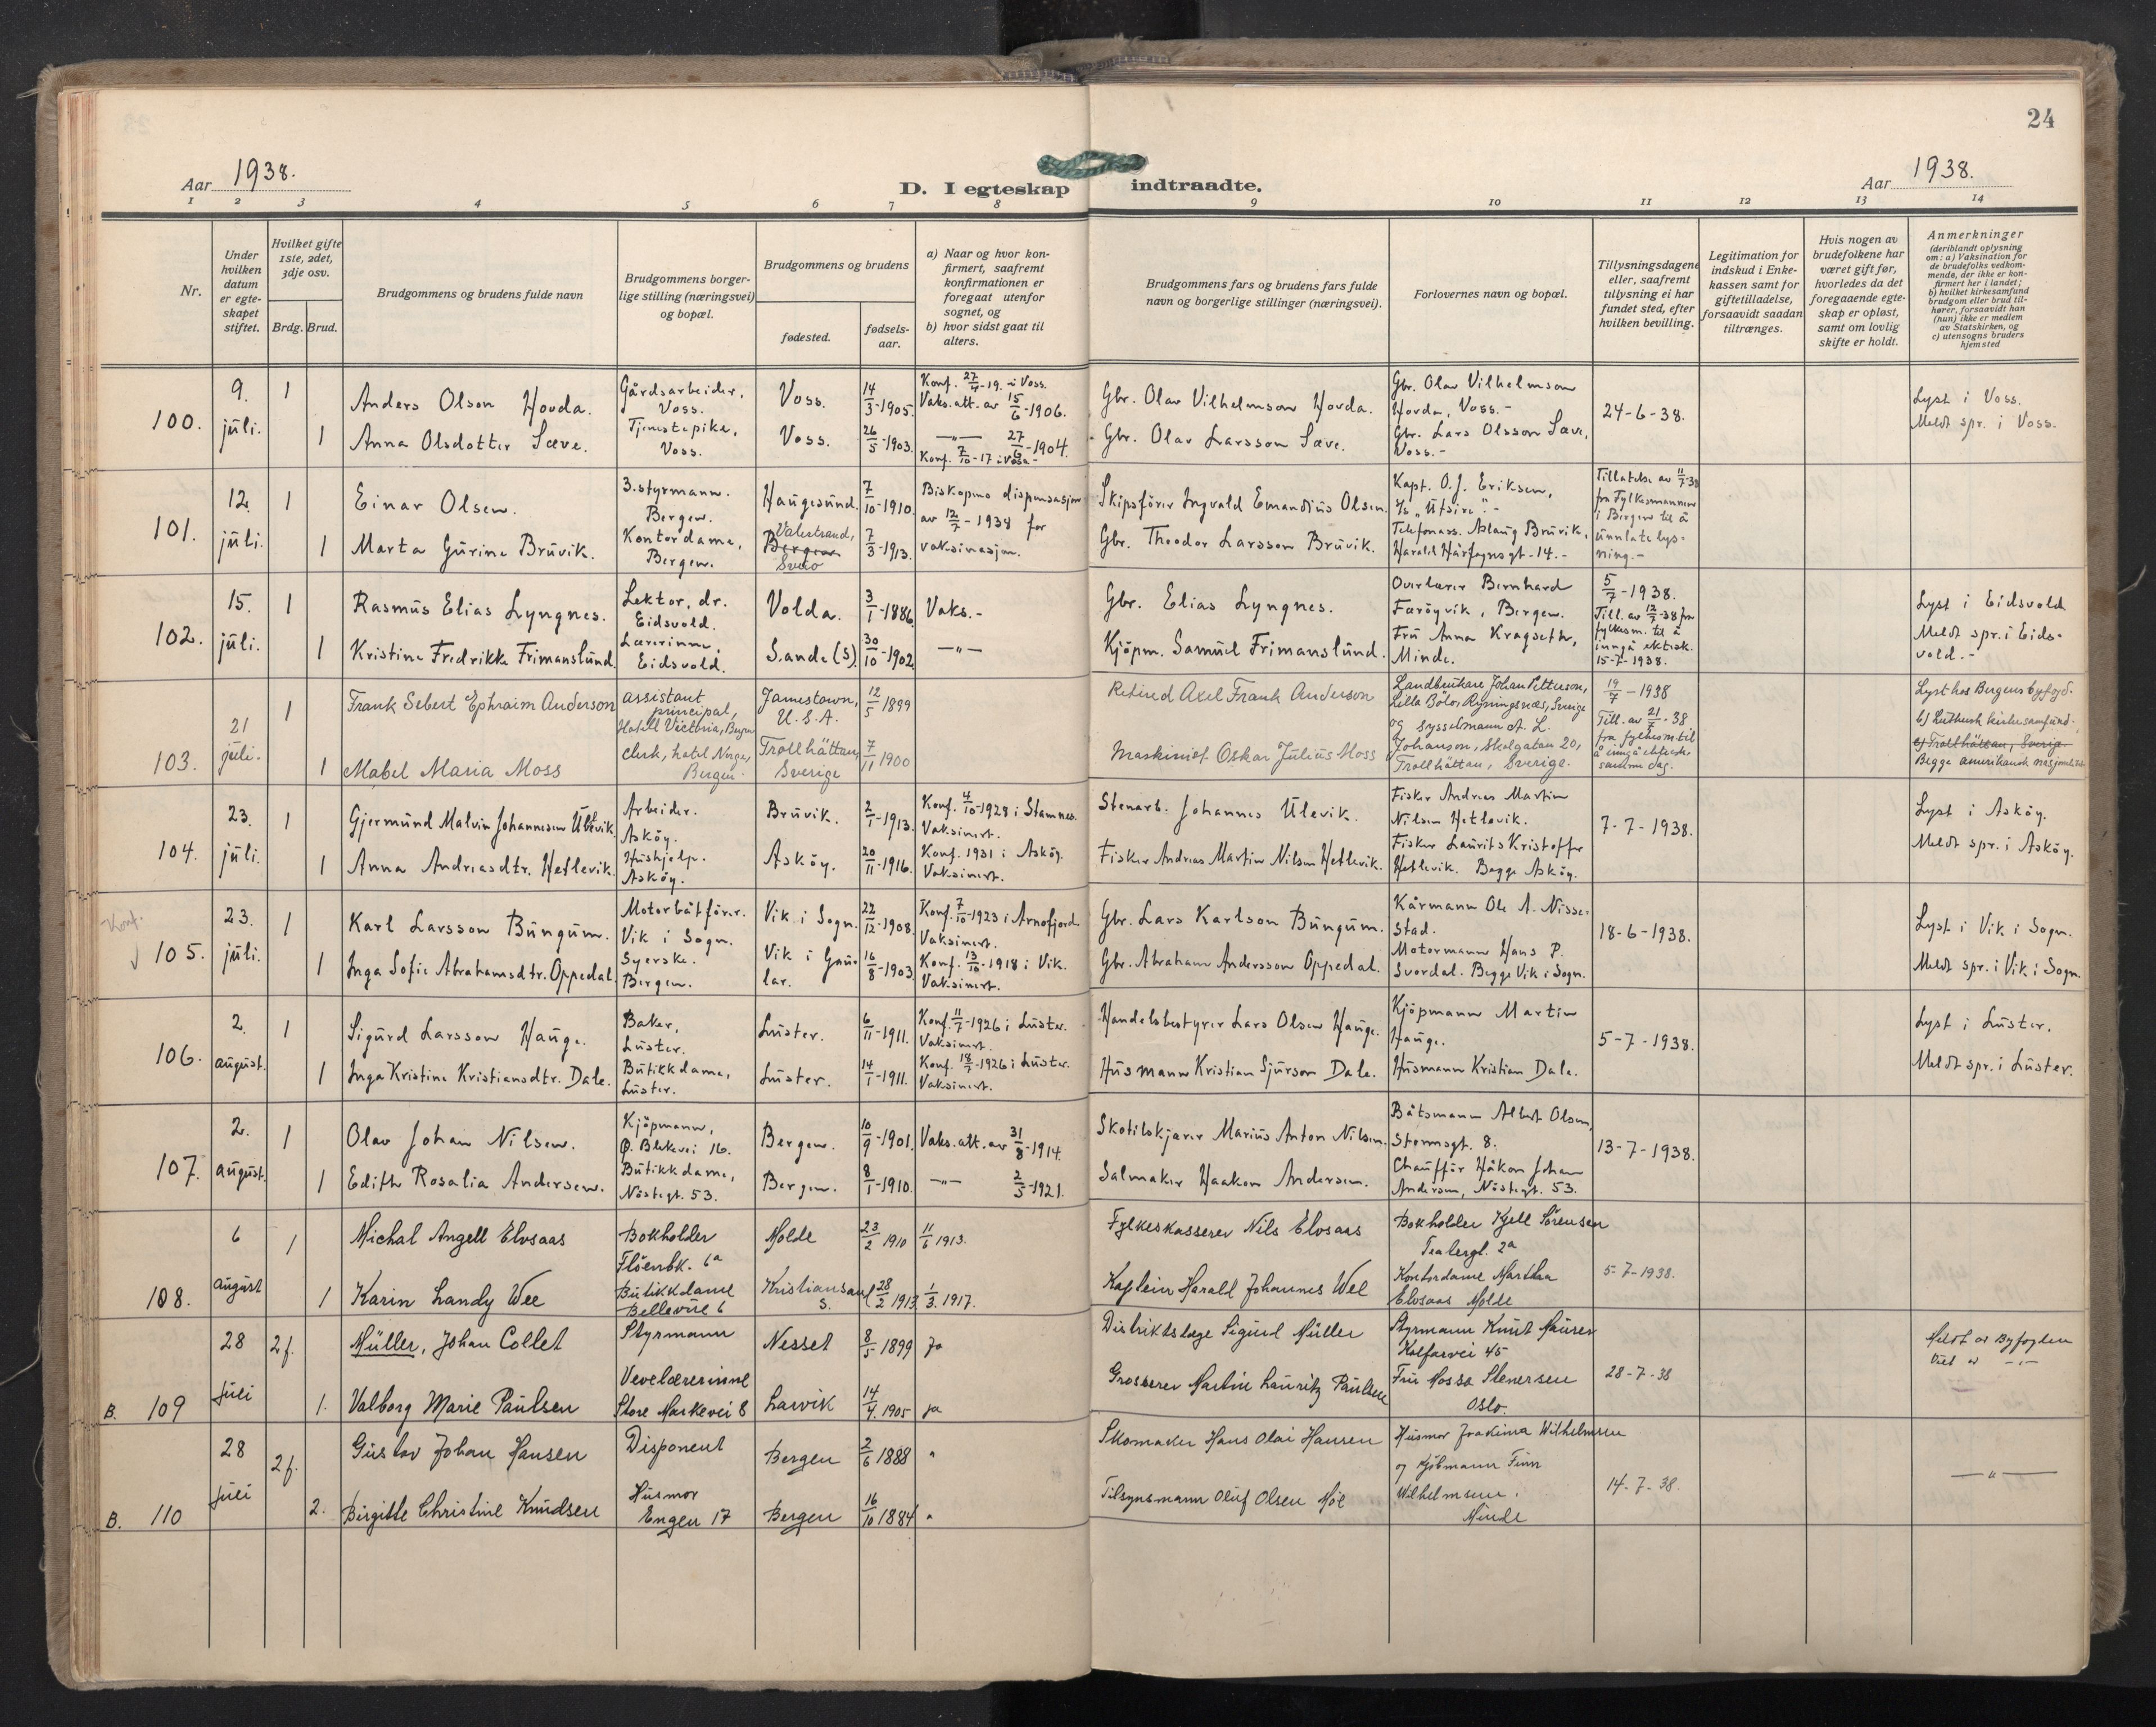 24
Aar 1938.
D. I egteskap indtraadte.
Aar 1938.
1 2 3 4 5 6 7 8 9 10 11 12 13 14
Nr.
Under hvilken datum er egte-skapet stiftet.
Hvilket gifte 1ste, 2det, 3dje osv.
Brdg. Brud.
Brudgommens og brudens fulde navn
Brudgommens borger-lige stilling (næringsvei) og bopæl.
Brudgommens og brudens
fødested.
fødsels-aar.
a) Naar og hvor kon-firmert, saafremt konfirmationen er foregaat utenfor sognet, og
b) hvor sidst gaat til alters.
Brudgommens fars og brudens fars fulde navn og borgerlige stillinger (næringsvei).
Forlovernes navn og bopæl.
Tillysningsdagene eller, saafremt tillysning ei har fundet sted, efter hvilken bevilling.
Legitimation for indskud i Enke-kassen samt for giftetilladelse, forsaavidt saadan tiltrænges.
Hvis nogen av brudefolkene har været gift før, hvorledes da det foregaaende egte-skap er opløst, samt om lovlig skifte er holdt.
Anmerkninger
(deriblandt oplysning om: a) Vaksination for de brudefolks vedkom-mende, der ikke er kon-firmert her i landet; b) hvilket kirkesamfund brudgom eller brud til-hører, forsaavidt han (hun) ikke er medlem av Statskirken, og c) utensogns bruders hjemsted
100. 9. juli. 1 Anders Olson Hovda. Gårdsarbeider, Voss. Voss. 14/3-1905. Konf. 27/4-19. i Voss. Vaks.att. av 15/6-1906. Gbr. Olav Vilhelmson Hovda. Gbr. Olav Vilhelmson Hovda, Voss.- 24-6-38. Lyst i Voss.
1 Anna Olsdotter Sæve. Tjenestepike, Voss. Voss. 26/5-1903. —„— 27/6-1904. Konf. 7/10-17 i Voss- Gbr. Olav Larsson Sæve. Gbr. Lars Olsson Sæve, Voss.- Meldt spr. i Voss.
101. 12. juli. 1 Einar Olsen. 3.styrmann. Bergen. Haugesund. 7/10-1910. Biskopens dispensasjon av 12/7-1938 for vaksinasjon. Skipsfører Ingvald Emandius Olsen. Kapt. O.J. Eriksen, „Utsire".- Tillatelse av 11/7-38 fra Fylkesmannen i Bergen til å unnlate lys-ning.-
1 Marta Gurine Bruvik. Kontordame, Bergen. Valestrand, Bergen Sveio 7/3-1913. Gbr. Theodor Larsson Bruvik. Telefonass. Aslaug Bruvik, Harald Hårfagresgt-14.-
102. 15. juli. 1 Rasmus Elias Lyngnes. Lektor, dr. Eidsvold. Volda. 3/1-1886. Vaks.- Gbr. Elias Lyngnes. Overlærer Bernhard Færøyvik, Bergen. 5/7-1938. Till. av 12/7-38 fra fylkesm. til å inngå ektesk. 15-7-1938. Lyst i Eidsvold
1 Kristine Fredrikke Frimanslund. Lærerinne, Eidsvold. Sande (S). 30/10-1902. —„— Kjøpm. Samuel Frimanslund. Fru Anna Kragseth, Minde. Meldt spr. i Eids-vold.-
103. 21 juli. 1 Frank Sebert Ephraim Anderson assistant principal, Hotell Victoria, Bergen Jamestown, U.S.A. 12/5 1899 Retired Axel Frank Anderson Landbrukare Johan Petterson, Lilla Bölo, Ryningsnæs, Sverige 19/7-1938 Till. av 21/7-38 fra fylkesm til å inngå ektesk. samme dag. Lyst hos Bergens byfogd. b) Luthersk kirkesamfund.
1 Mabel Maria Moss clerk, hotel Norge, Bergen. Trollhättan, Sverige 7/11 1900 Maskinist Oskar Julius Moss og Sysselmann A. L. Johanson, Skolgatan 20, Trollhättan, Sverige. c) Trollhättan, Sverige. Begge amerikansk
104. 23. juli. 1 Gjermund Malvin Johannesen Ulevik. Arbeider. Askøy. Bruvik. 2/1-1913. Konf. 4/10-1928 i Stamnes. Vaksinert. Stenarb. Johannes Ulevik. Fisker Andreas Martin Nilsen Hetlevik. 7-7-1938. Lyst i Askøy.
1 Anna Andreasdtr. Hetlevik. Hushjelp. Askøy. Askøy. 20/11-1916. Konf. 1931 i Askøy. Vaksinert. Fisker Andreas Martin Nilsen Hetlevik. Fisker Laurits Kristoffer Hetlevik. Begge Askøy. Meldt spr. i Askøy.
Konf.
105. 23. juli. 1 Karl Larsson Bungum. Motorbåtfører. Vik i Sogn. Vik i Sogn. 22/12-1908. Konf. 7/10-1923 i Arnafjord. Vaksinert. Gbr. Lars Karlson Bungum. Kårmann Ole A. Nisse-stad. 18-6-1938. Lyst i Vik i Sogn.
1 Inga Sofie Abrahamsdtr. Oppedal. Syerske. Bergen. Vik i Gau-lar. 16/8-1903. Konf. 13/10-1918 i Vik. Vaksinert. Gbr. Abraham Andersson Oppedal. Motormann Hans P. Svordal. Begge Vik i Sogn. Meldt spr. i Vik i Sogn.
106. 2. august. 1 Sigurd Larsson Hauge. Baker, Luster. Luster. 6/11-1911. Konf. 11/7-1926 i Luster. Vaksinert. Handelsbestyrer Lars Olsen Hauge. Kjøpmann Martin Hauge. 5-7-1938. Lyst i Luster.
1 Inga Kristine Kristiansdtr. Dale. Butikkdame, Luster. Luster. 14/1-1911. Konf. 18/7-1926 i Luster. Vaksinert. Husmann Kristian Sjurson Dale. Husmann Kristian Dale. Meldt spr. i Luster.
107. 2. august. 1 Olav Johan Nilsen. Kjøpmann, Ø. Blekevei 16. Bergen. 10/9-1901. Vaks.att. av 31/8-1914. Skotilskjærer Marius Anton Nilsen. Båtsmann Albert Olsen, Steensgt. 8. 13-7-1938.
1 Edith Rosalia Andersen. Butikkdame, Nøstegt. 53. Bergen. 8/1-1910. —„— 2/5-1921. Salmaker Haakon Andersen. Chauffør Håkon Johan Andersen, Nøstegt. 53.
108. 6 august 1 Michal Angell Elvsaas Bokholder Fløenbk. 6a Molde 23/2 1910 11/6 1913. Fylkeskasserer Nils Elvsaas Bokholder Kjell Sörensen Teatergt. 2a 5-7-1938.
1 Karin Landy Wee Butikkdame Bellevue 6 Kristiansand S. 28/2 1913. 1/3. 1917. Kaptein Harald Johannes Wee Kontordame Marthea Elvsaas Molde
B. 109 28 juli 2f. Müller, Johan Collet Styrmann Nesset 8/5 1899 ja Distriktslæge Sigurd Müller Styrmann Knut Hauser Kalfarvei 45 28-7-38 Meldt av Byfogden
1. Valborg Marie Paulsen Vevelærerinne Store Markevei 8 Larvik 14/4. 1905 ja Grosserer Martin Lauritz Paulsen Fru Mossa Stenersen Oslo.
B. 110 28 juli 2f. Gustav Johan Hansen Disponent Bergen 2/6 1888 " Skomaker Hans Olai Hansen Husmor Joakima Wilhelmsen og Kjøbmann Finn Wilhelmsen. Minde 14-7-38. —„—
2. Birgitte Christine Knudsen Husmor Engen 17 Bergen 16/10 1884 " Tilsynsmann Oluf Olsen Moe